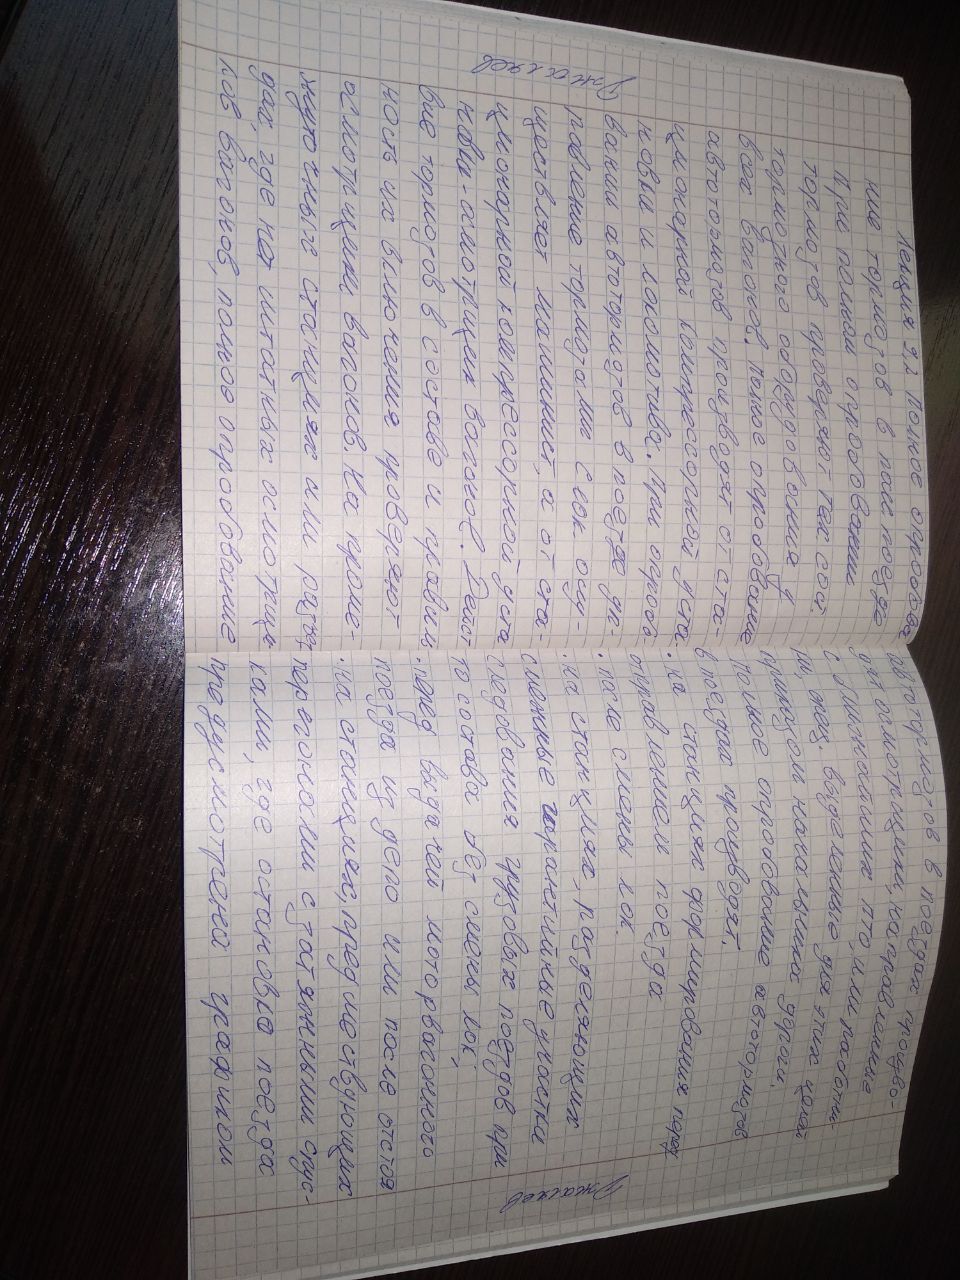 Лекция 22 Полное опробова
ние тормозов в пас. поезде
При полном опробовании
тормозов проверяют тех. сост.
тормозного оборудования у
всех вагонов. Полное опробование
автотормозов производят от ста-
ционарной компрессорной уста-
новки и локомотива. При опробо
вании автотормозов в поезде уп-
равление тормозами с лок осу-
ществляет машинист, а от ста-
ционарной компрессорной уста
новки - осмотрщик вагонов. Дейст
вие тормозов в составе и правиль
ность их включения проверяют
осмотрщики вагонов. На проме-
жуточных станциях или разъез
дах, где нет штатных осмотрщи
ков вагонов, полное опробование
Джаляев
автотормозов в поездах произво-
дят осмотрщики, направляемые
с ближайших пто, или работни
ки, жез. выделенные для этих целей
приказом начальника дороги.
Полное опробование автотормозов
в поездах производят:
. на станциях формирования перед
отправлением поезда
. после смены лок.
. на станциях, разделяющих
смежные гарантийные участки
следования грузовых поездов при
то состава без смены лок;
. перед выдачей моторвагонного
поезда из депо или после отстоя
. на станциях, предшествующих
перегонам с затяжными спус-
ками, где остановка поезда
предусмотрена графиком
Джаляев